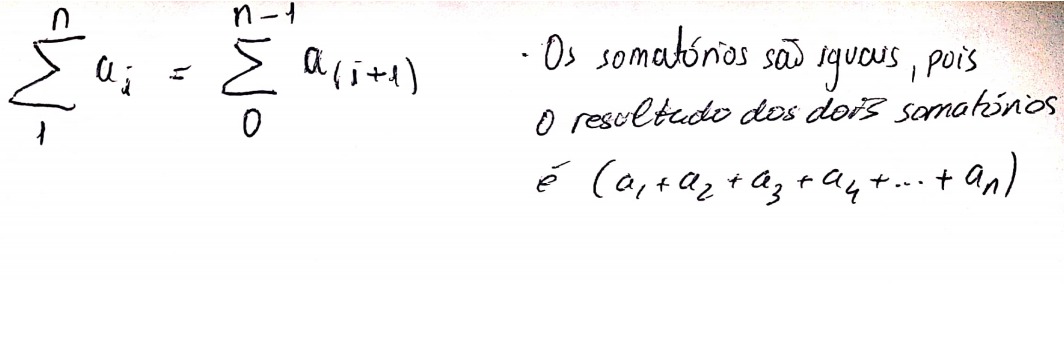 n n-1
∑ aᵢ = ∑ a₍ᵢ₊₁₎
1 0
· Os somatórios são iguais, pois
o resultado dos dois somatórios
é (a₁ + a₂ + a₃ + a₄ + ... + aₙ)